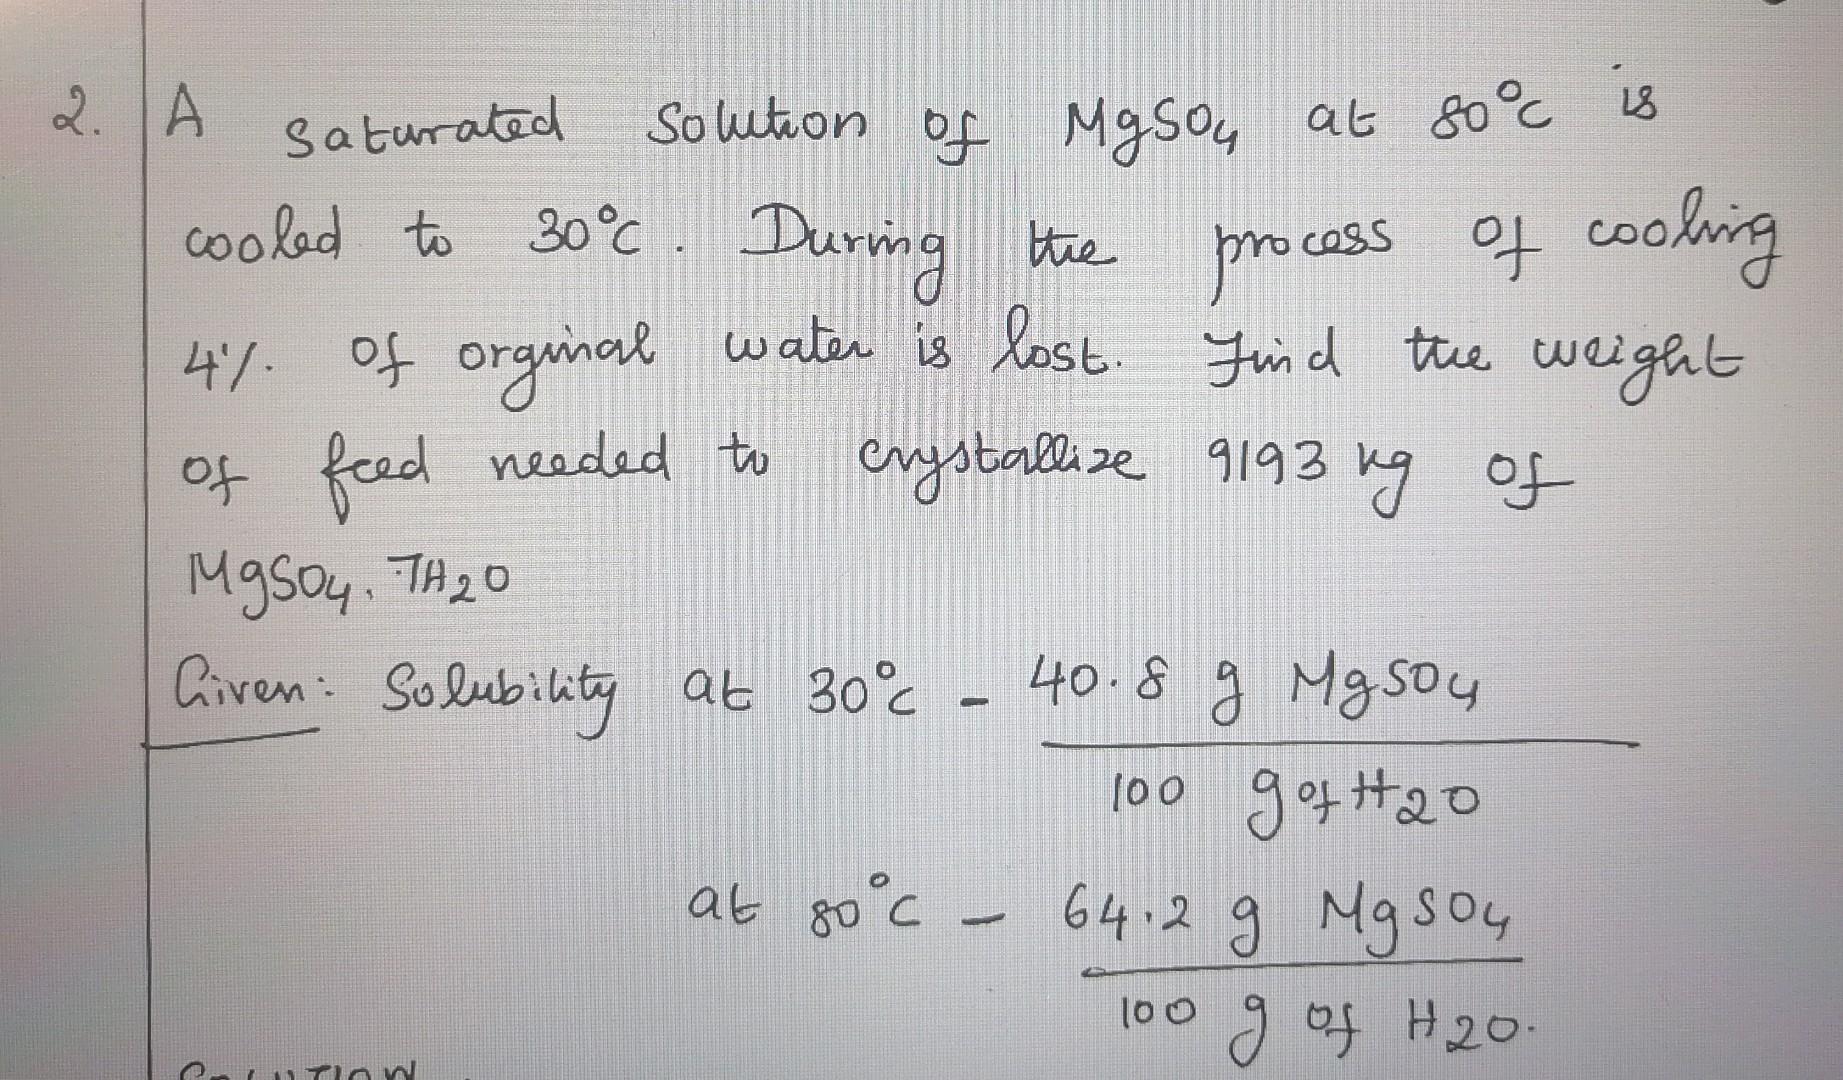 2. A saturated solution of MgSO4 at 80°C is
cooled to 30°C. During the process of cooling
4% of orginal water is lost. Find the weight
of feed needed to crystallize 9193 kg of
MgSO4. 7H2O
Given: Solubility at 30°C - 40.8 g MgSO4
100 g of H2O
at 80°C - 64.2 g MgSO4
100 g of H2O.
SOLUTION